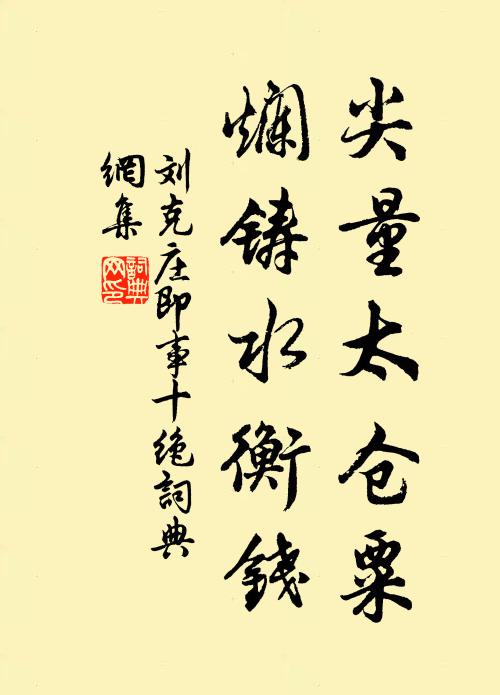 尖量太仓粟
爛铸水衡錢
刘克庄即事十绝詞典
網集
詞典
网印